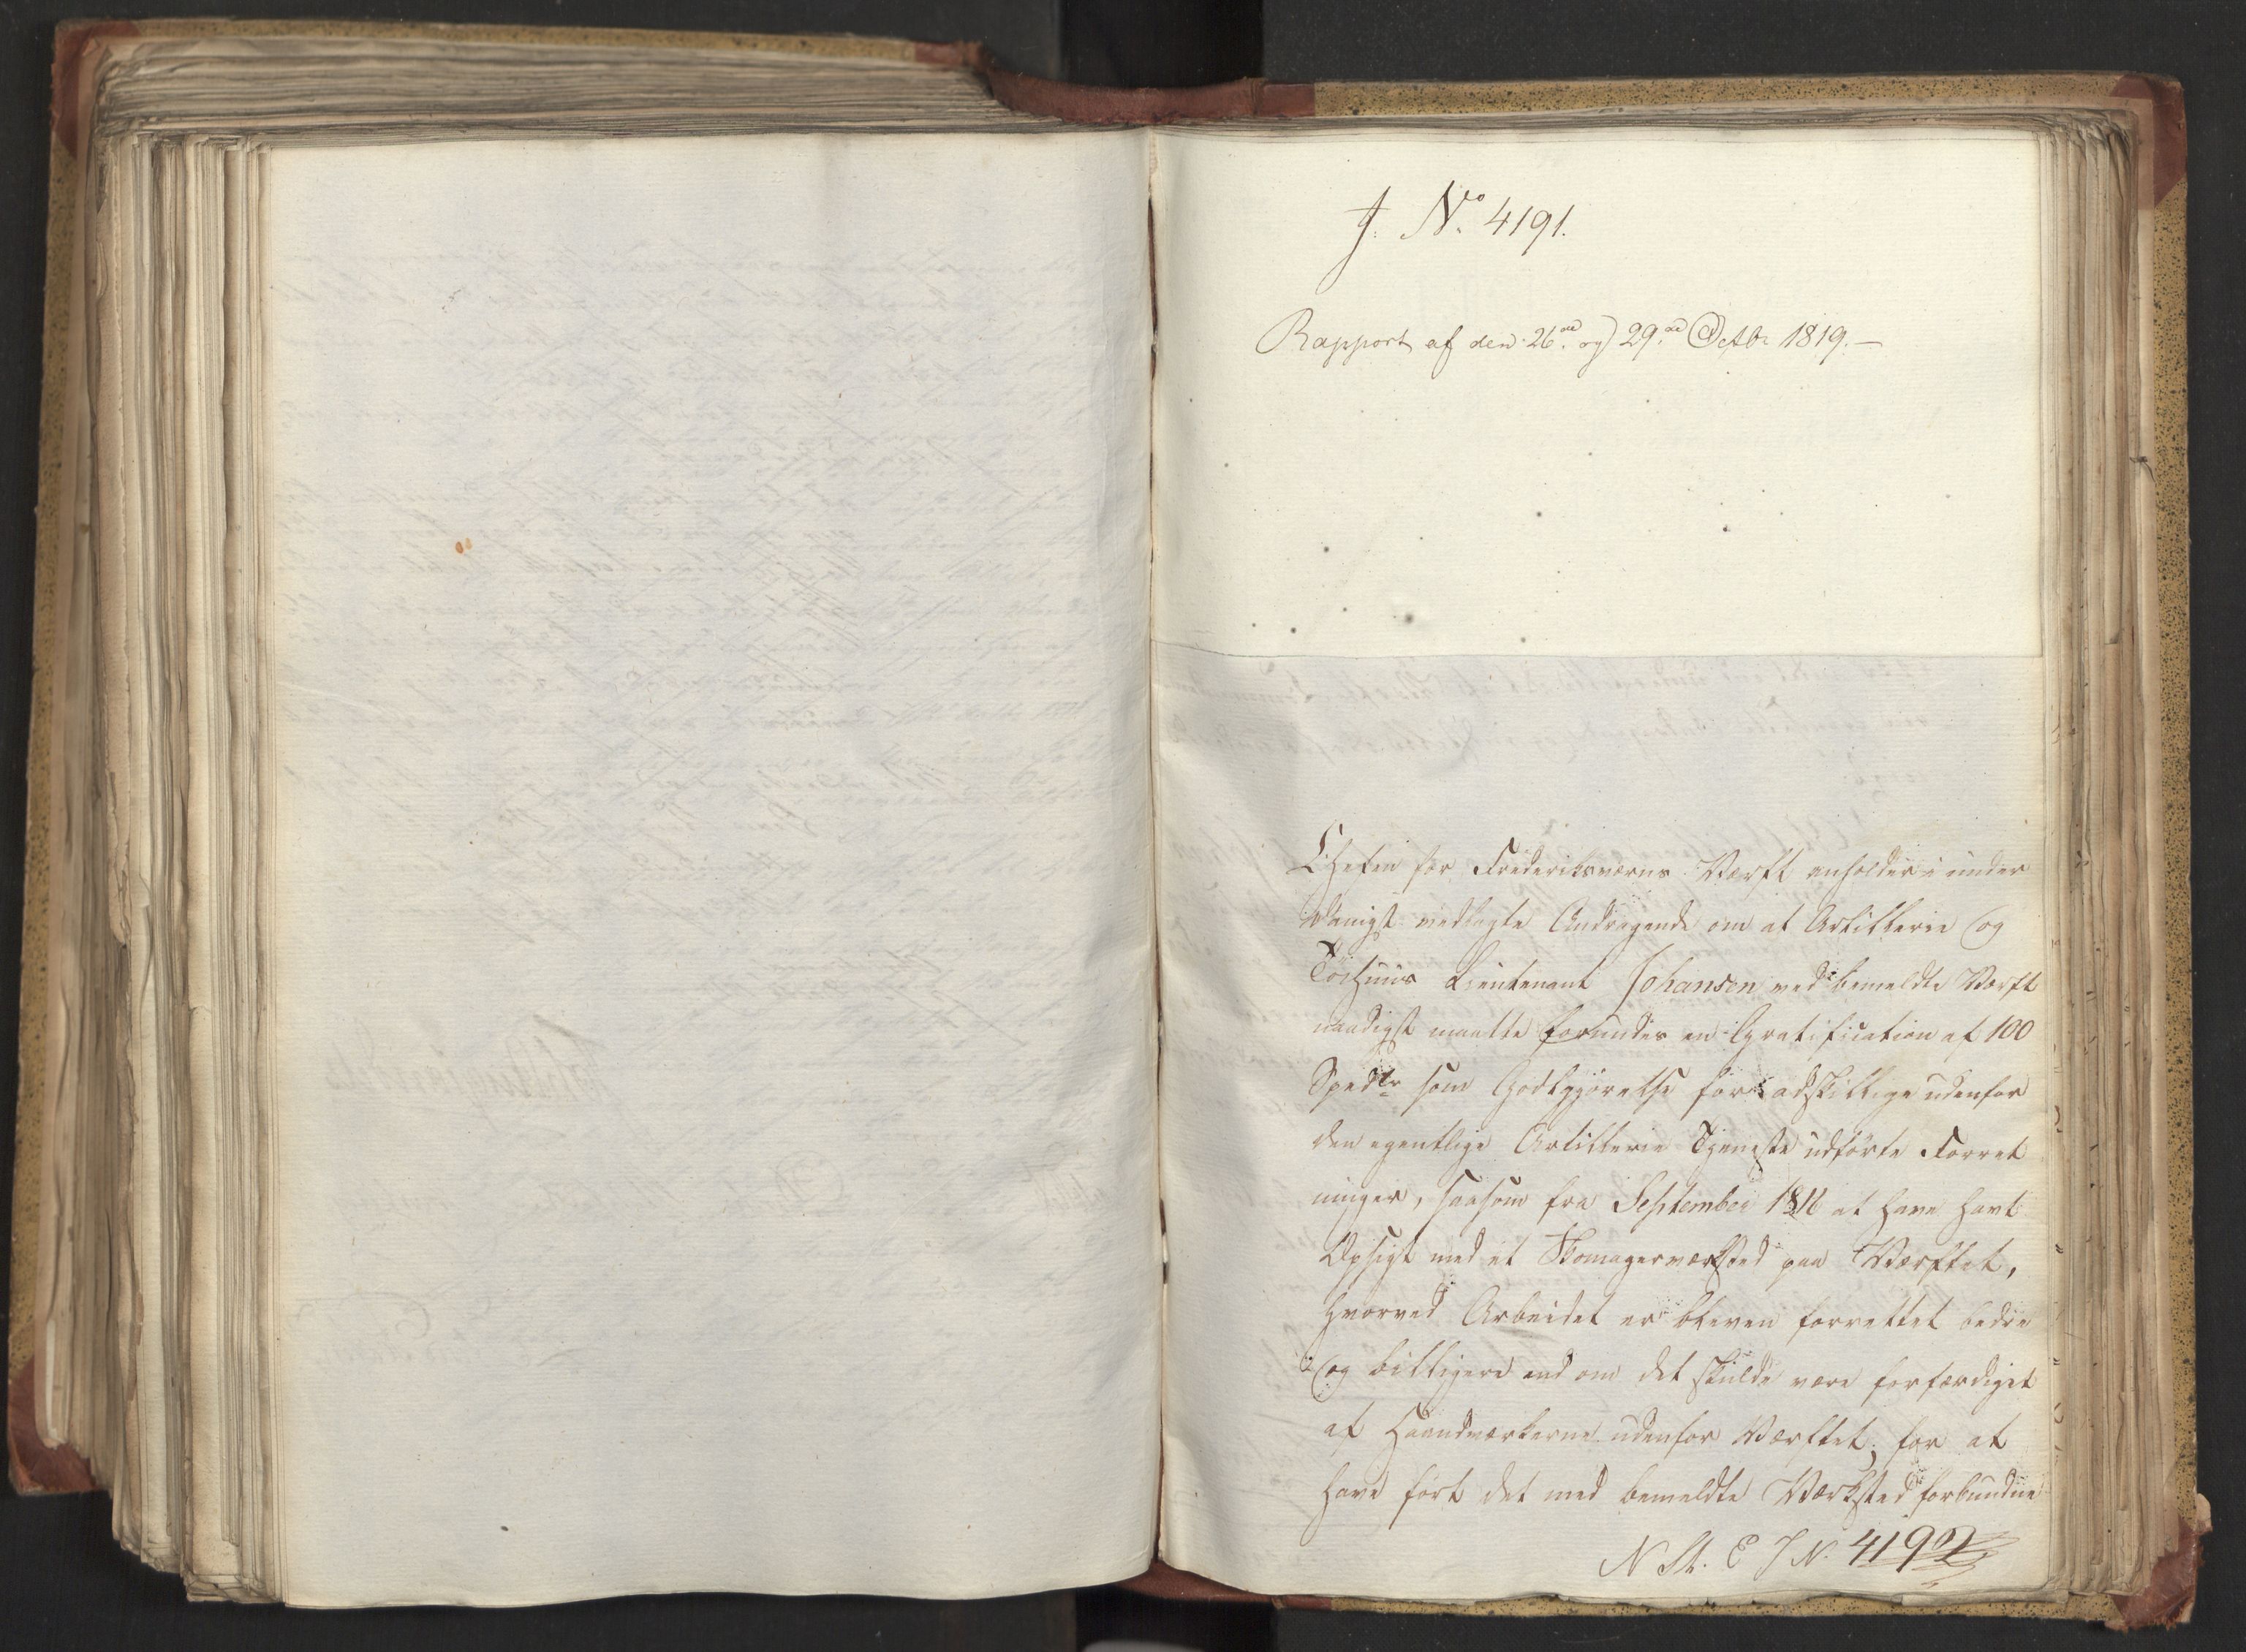 J. No. 4191.
Rapport af den 26de og 29de Octbr 1819.—
Chefen for Frederiksværns Værft anholder i under
danigst vedlagte Andragende om at Artillerie og
Töihuus Lieutenant Johansen ved bemeldte Værft
naadigst maatte forundes en Gratification af 100
Spdlr som Godtgjörelse for adskillige udenfor
den egentlige Artillerie Tjeneste udförte Forret
ninger, saasom fra September 1816 at have havt
Opsigt med et Skomagerværksted paa Værftet,
hvorved Arbeidet er bleven forrettet bedre
og billigere end om det skulde være forfærdiget
af Haandværkerne udenfor Værftet, for at
have fört det med bemeldte Værksted forbundne
N St. E J N. 4192